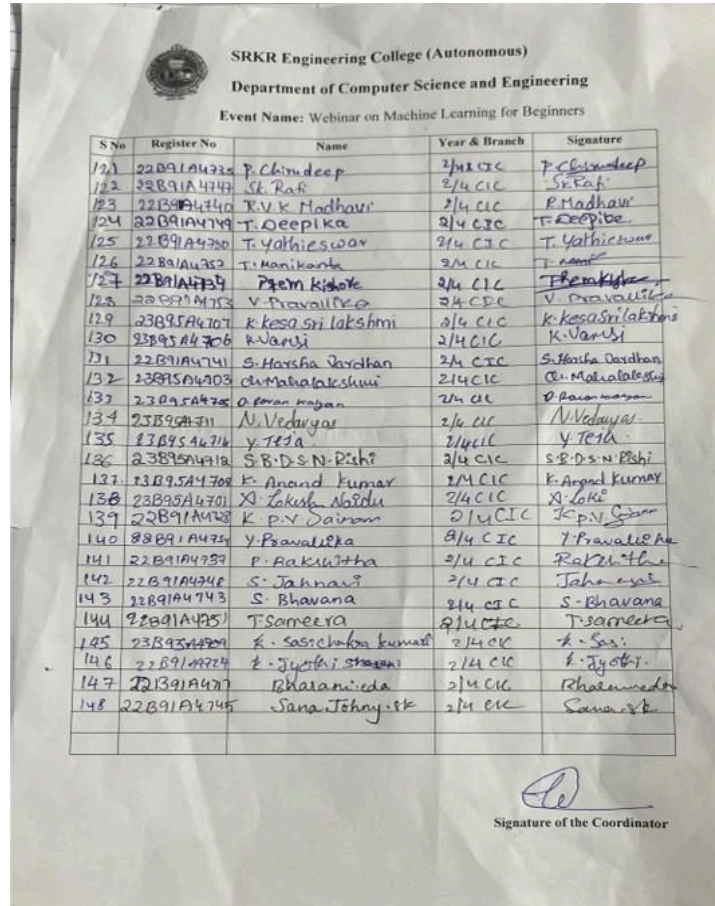 SRKR Engineering College (Autonomous)
Department of Computer Science and Engineering
Event Name: Webinar on Machine Learning for Beginners
S No Register No Name Year & Branch Signature
121 22B91A4735 P. Chirudeep 2/4 CIC P. Chirudeep
122 22B91A4747 Sk. Rafi 2/4 CIC Sk. Rafi
123 22B91A4740 R.V.K Madhavi 2/4 CIC R Madhavi
124 22B91A4749 T. Deepika 2/4 CIC
125 22B91A4750 T. Yathieswar 2/4 CIC T. Yathieswar
126 22B91A4752 T. Manikanta 2/4 CIC
127 22B91A4739 Prem Kishore 2/4 CIC
128 22B91A4753 V. Pravallika 2/4 V. Pravallika
129 23B95A4707 K. Kesa Sri lakshmi 2/4 CIC K. Kesa Sri lakshmi
130 23B95A4706 K. Vamsi 2/4 CIC K. Vamsi
131 22B91A4741 S. Harsha Vardhan 2/4 CIC S. Harsha Vardhan
132 23B95A4703 Ch. Mahalakshmi 2/4 CIC
133 23B95A4705 2/4 CIC
134 N. Vedavyas 2/4 CIC N. Vedavyas.
135 23B95A4714 Y. Teja. 2/4 CIC Y. Teja.
136 23B95A4712 S.B.D.S.N. Rishi 2/4 CIC S.B.D.S.N. Rishi
137. 23B95A4708 K. Anand Kumar 2/4 CIC K. Anand Kumar
138 23B95A4701 Lokesh Naidu 2/4 CIC Loki
139 22B91A4728 K P.V Sairam 2/4 CIC K P.V Sairam
140 Y. Pravallika 2/4 CIC
141 22B91A4737 P. Rakshitha 2/4 CIC Rakshitha
142 22B91A4746 S. Jahnavi 2/4 CIC
143 22B91A4743 S. Bhavana 2/4 CIC S. Bhavana
144 22B91A4751 T. Sameera 2/4 CIC T. Sameera
145 K. Sasichakra kumari 2/4 CIC K. Sasi
146 22B91A4724 K. Jyothi 2/4 CIC K. Jyothi.
147 Bharani.eda 2/4 CIC
148 22B91A4745 Sana Johny. sk 2/4 CIC Sana.sk
Signature of the Coordinator